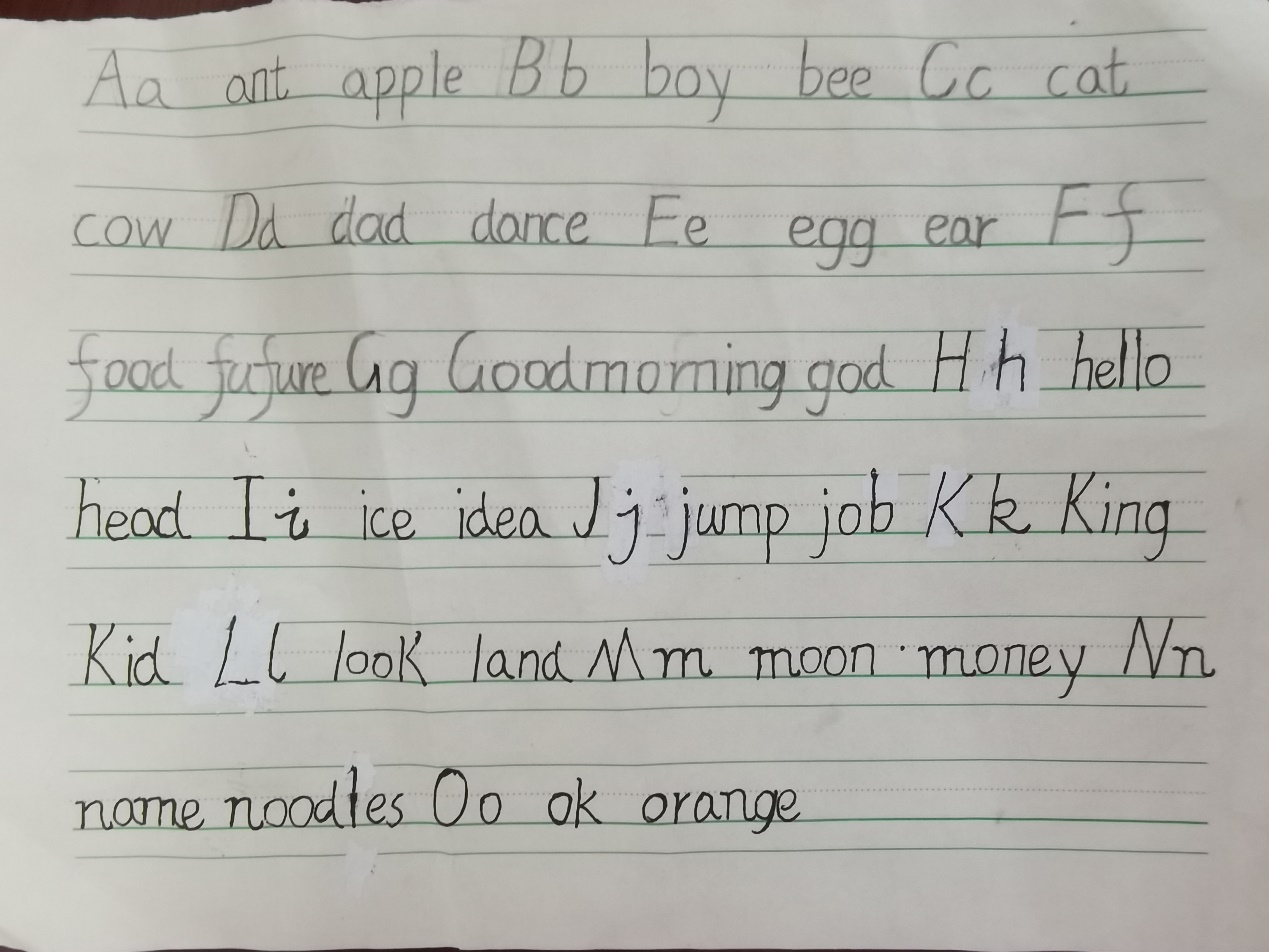 Aa ant apple Bb boy bee Cc cat
cow Dd dad dance Ee egg ear Ff
food fufure Gg Goodmorning god Hh hello
head Ii ice idea Jj jump job Kk King
Kid Ll look land Mm moon money Nn
name noodles Oo ok orange